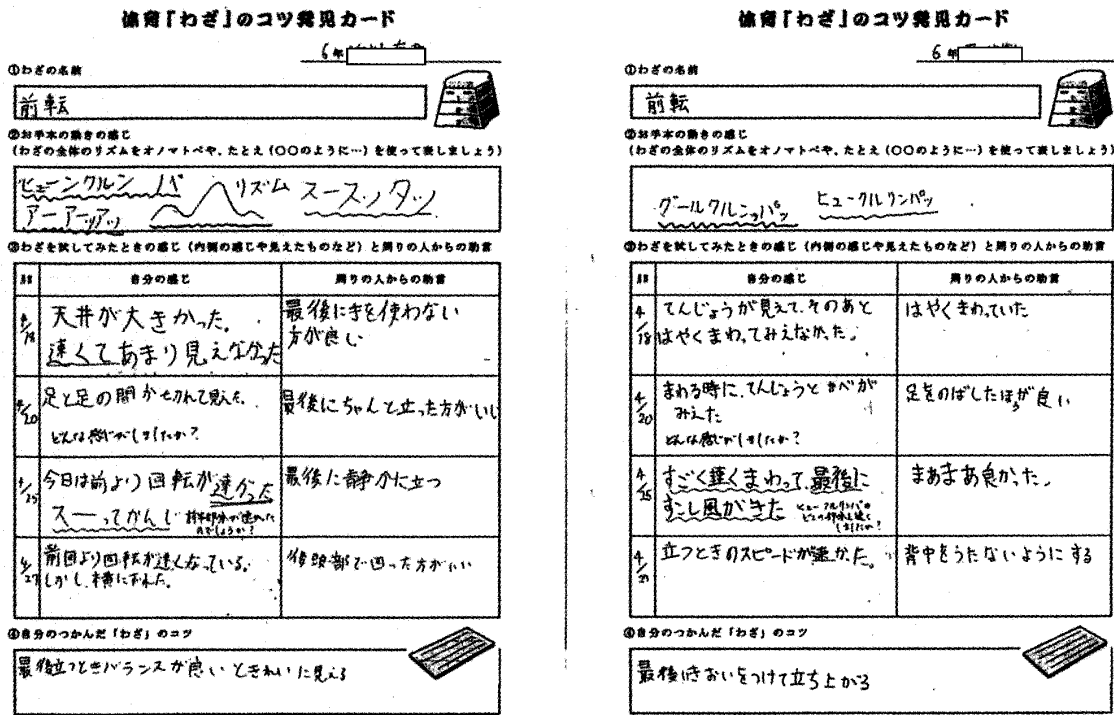 体育「わざ」のコツ発見カード
6年
①わざの名前
前転
②お手本の動きの感じ
(わざの全体のリズムをオノマトペや、たとえ(〇〇のように…)を使って表しましょう)
ヒューンクルン パ リズム スースッタッ
アーアーッアッ
③わざを試してみたときの感じ(内側の感じや見えたものなど)と周りの人からの助言
月日 自分の感じ 周りの人からの助言
4/18 天井が大きかった。
速くてあまり見えなかった
最後に手を使わない
方が良い
4/20 足と足の間から切れて見えた。
どんな感じがしましたか?
最後にちゃんと立った方がいい
4/25 今日は前より回転が速かった
スーってかんじ
最後に静かに立つ
4/27 前回より回転が速くなっている。
しかし、横にずれた。
後頭部で回った方がいい
④自分のつかんだ「わざ」のコツ
最後立つときバランスが良いときれいに見える
体育「わざ」のコツ発見カード
6年
①わざの名前
前転
②お手本の動きの感じ
(わざの全体のリズムをオノマトペや、たとえ(〇〇のように…)を使って表しましょう)
グールクルンッパッ ヒュークルリンパッ
③わざを試してみたときの感じ(内側の感じや見えたものなど)と周りの人からの助言
月日 自分の感じ 周りの人からの助言
4/18 てんじょうが見えて、そのあと
はやくまわってみえなかった。
はやくまわっていた
4/20 まわる時に、てんじょうとかべが
みえた
どんな感じがしましたか?
足をのばしたほうが良い
4/25 すごく速くまわって、最後に
すこし風がきた
まあまあ良かった。
4/27 立つときのスピードが速かった。
背中をうたないようにする
④自分のつかんだ「わざ」のコツ
最後にきおいをつけて立ち上がる